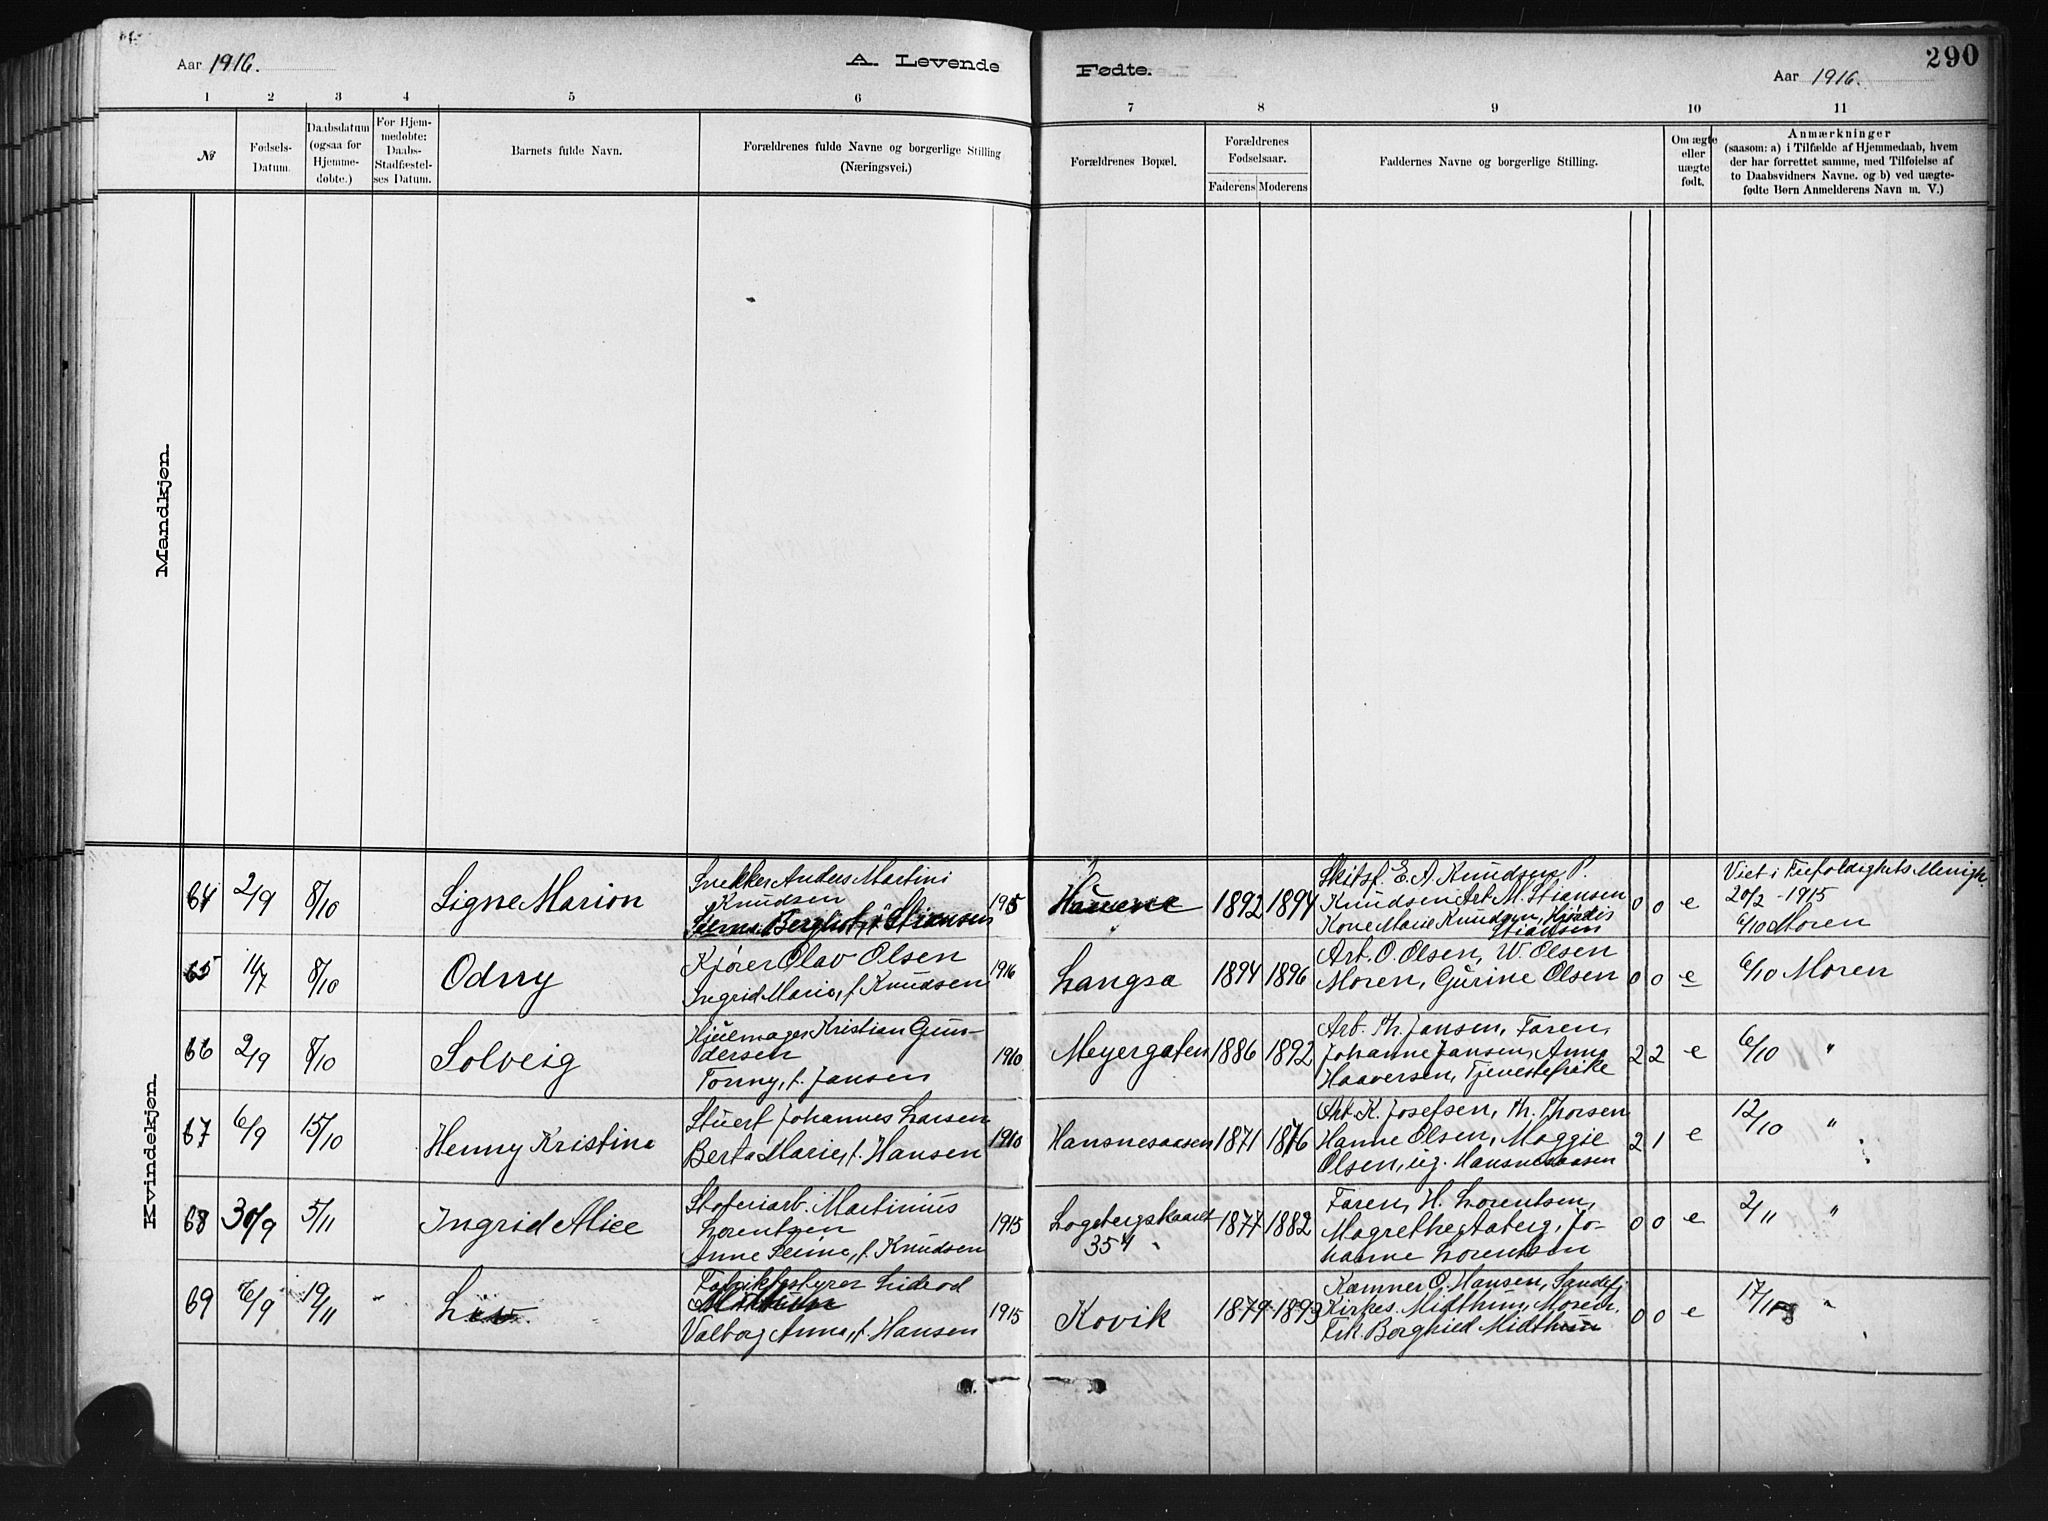 Aar 1916.
A. Levende
Fødte.
290
Aar 1916.
1 2 3 4 5 6 7 8 9 10 11
№
Fødsels-
Datum.
Daabsdatum
(ogsaa for
Hjemme-
døbte.)
For Hjem-
medøbte:
Daabs-
Stadfæstel-
ses Datum.
Barnets fulde Navn.
Forældrenes fulde Navne og borgerlige Stilling
(Næringsvei.)
Forældrenes Bopæl.
Forældrenes
Fødselsaar.
Faderens Moderens
Faddernes Navne og borgerlige Stilling.
Om ægte
eller
uægte
født.
Anmærkninger
(saasom: a) i Tilfælde af Hjemmedaab, hvem
der har forrettet samme, med Tilføielse af
to Daabsvidners Navne. og b) ved uægte-
fødte Børn Anmelderens Navn m. V.)
Mandkjøn.
Kvindekjøn.
64 2/9 8/10
Signe Marion
Snekker Anders Martini
Knudsen
Berghot, f. Stiansen
1915
1892 1894
E. A. Knudsen, P.
Knudsen, Arb. M. Stiansen
Kone Marie Knudsen, Hjørdis
Stiansen
0 0 e
Viet i Trefoldighets Menigh.
20/2 - 1915
6/10 Moren
65 11/7 8/10
Odny
Kjører Olav Olsen
Ingrid Marie, f. Knudsen
1916
Langsa
1894 1896
Arb. O. Olsen, W. Olsen
Moren, Gurine Olsen
0 0 e
6/10 Moren
66 2/9 8/10
Solveig
Hjulmager Kristian Gun-
dersen
Tonny, f. Jansen
1910
Meyergaten
1886 1892
Arb. Th. Jansen, Faren,
Johanne Jansen, Anna
Haaversen, Tjenestepike
2 2 e
6/10 "
67 6/9 15/10
Henny Kristine
Stuert Johannes Larsen
Berta Marie, f. Hansen
1910
Hansnesaasen
1871 1876
Arb. K. Josefsen, Th. Thorsen
Hanne Olsen, Maggie
Olsen, ug. Hansnesaasen
2 1 e
12/10 "
68 30/9 5/11
Ingrid Alice
Martinius
Lorentzen
Anne Seline, f. Knudsen
1915
Logebergskaaret
354
1877 1882
Faren, H. Lorentsen,
Magrethe Aaberg, Jo-
hanne Lorentsen
0 0 e
2/11 "
69 6/9 19/11
Liv
Fabrikbestyrer Lidvod
Midthun
Valborg Anna, f. Hansen
1915
Kovik
1879 1893
Kæmner O. Hansen, Sandefj.
Kirkes. Midthun, Moren,
Frk. Borghild Midthun
0 0 e
17/11 "